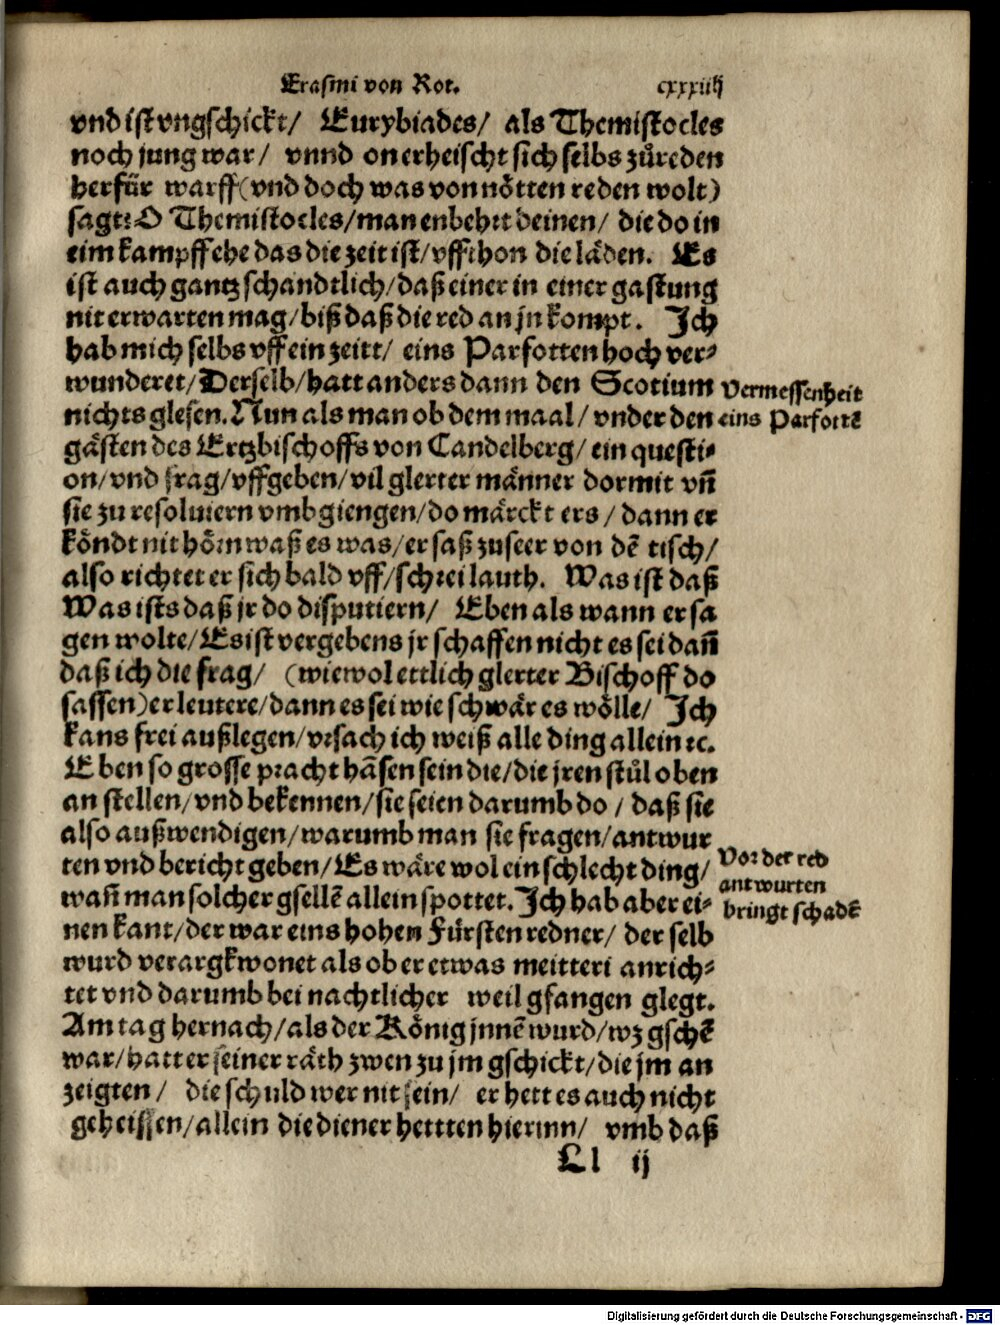 Erasmi von Rot. cxxxiiij
vnd ist vngschickt/ Eurybiades/ als Themistocles
noch jung war/ vnnd onerheischt sich selbs zůreden
herfür warff (vnd doch was von nötten reden wolt)
sagt: O Themistocles/ man enbehrt deinen/ die do in
eim kampff ehe das die zeit ist/ vffthon die läden. Es
ist auch gantz schandtlich/ daß einer in einer gastung
nit erwarten mag/ biß daß die red an jn kompt. Ich
hab mich selbs vff ein zeitt/ eins Parfotten hoch ver⸗
wunderet/ Derselb/ hatt anders dann den Scotium
nichts glesen. Nun als man ob dem maal/ vnder den
gästen des Ertzbischoffs von Candelberg/ ein questi⸗
on/ vnd frag/ vffgeben/ vil glerter männer dormit vñ
sie zu resoluiern vmbgiengen/ do märckt ers/ dann er
köndt nit hörn waß es was/ er saß zuseer von dẽ tisch/
also richtet er sich bald vff/ schrei lauth. Was ist daß
Was ists daß jr do disputiern/ Eben als wann er sa
gen wolte/ Es ist vergebens jr schaffen nicht es sei dañ
daß ich die frag/ (wiewol ettlich glerter Bischoff do
sassen) erleutere/ dann es sei wie schwär es wölle/ Ich
kans frei außlegen/ vrsach ich weiß alle ding allein ꝛc.
Eben so grosse pracht hãsen sein die/ die jren stůl oben
an stellen/ vnd bekennen/ sie seien darumb do / daß sie
also außwendigen/ warumb man sie fragen/ antwur
ten vnd bericht geben/ Es wäre wol ein schlecht ding/
wañ man solcher gsellẽ allein spottet. Ich hab aber ei⸗
nen kant/ der war eins hohen Fürsten redner/ der selb
wurd verargkwonet als ob er etwas meitteri anrich⸗
tet vnd darumb bei nachtlicher weil gfangen glegt.
Am tag hernach/ als der König jnnẽ wurd/ wz gschẽ
war/ hatt er seiner räth zwen zu jm gschickt/ die jm an
zeigten / die schuld wer nit sein/ er hett es auch nicht
geheissen/ allein die diener hettten hierinn/ vmb daß
Ll ij
Vermessenheit
eins Parfottẽ
Vor der red
antwurten
bringt schadẽ
Digitalisierung gefördert durch die Deutsche Forschungsgemeinschaft - DFG